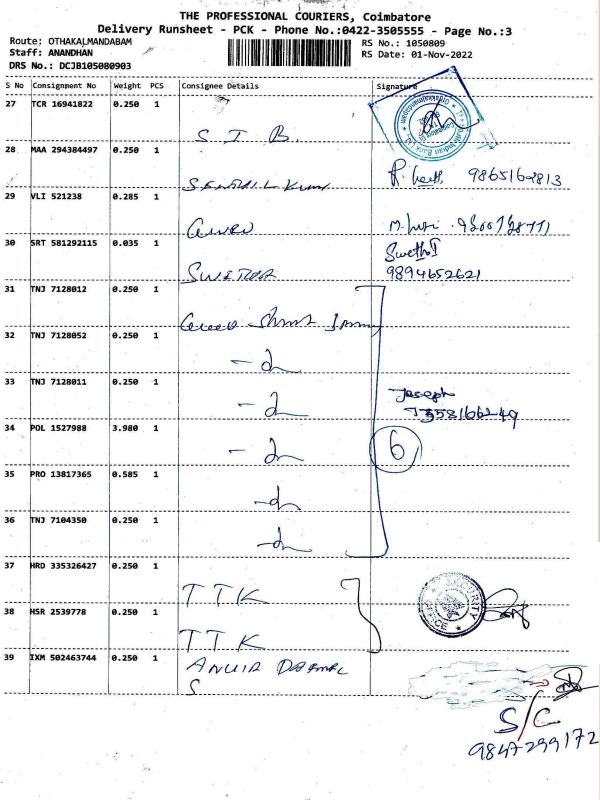 THE PROFESSIONAL COURIERS, Coimbatore
Delivery Runsheet - PCK - Phone No.:0422-3505555 - Page No.:3
Route: OTHAKALMANDABAM
RS No.: 1050809
Staff: ANANDHAN
RS Date: 01-Nov-2022
DRS No.: DCJB105080903
S No Consignment No Weight PCS Consignee Details Signature
27 TCR 16941822 0.250 1
S I B.
28 MAA 294384497 0.250 1
9865162813
29 VLI 521238 0.285 1
30 SRT 581292115 0.035 1
Swetha
9894652621
31 TNJ 7128012 0.250 1
32 TNJ 7128052 0.250 1
33 TNJ 7128011 0.250 1
Joseph
34 POL 1527988 3.980 1
6
35 PRO 13817365 0.585 1
36 TNJ 7104350 0.250 1
37 HRD 335326427 0.250 1
TTK
SECURITY
OFFICE
38 HSR 2539778 0.250 1
TTK
39 IXM 502463744 0.250 1
S
S/C
9847299172